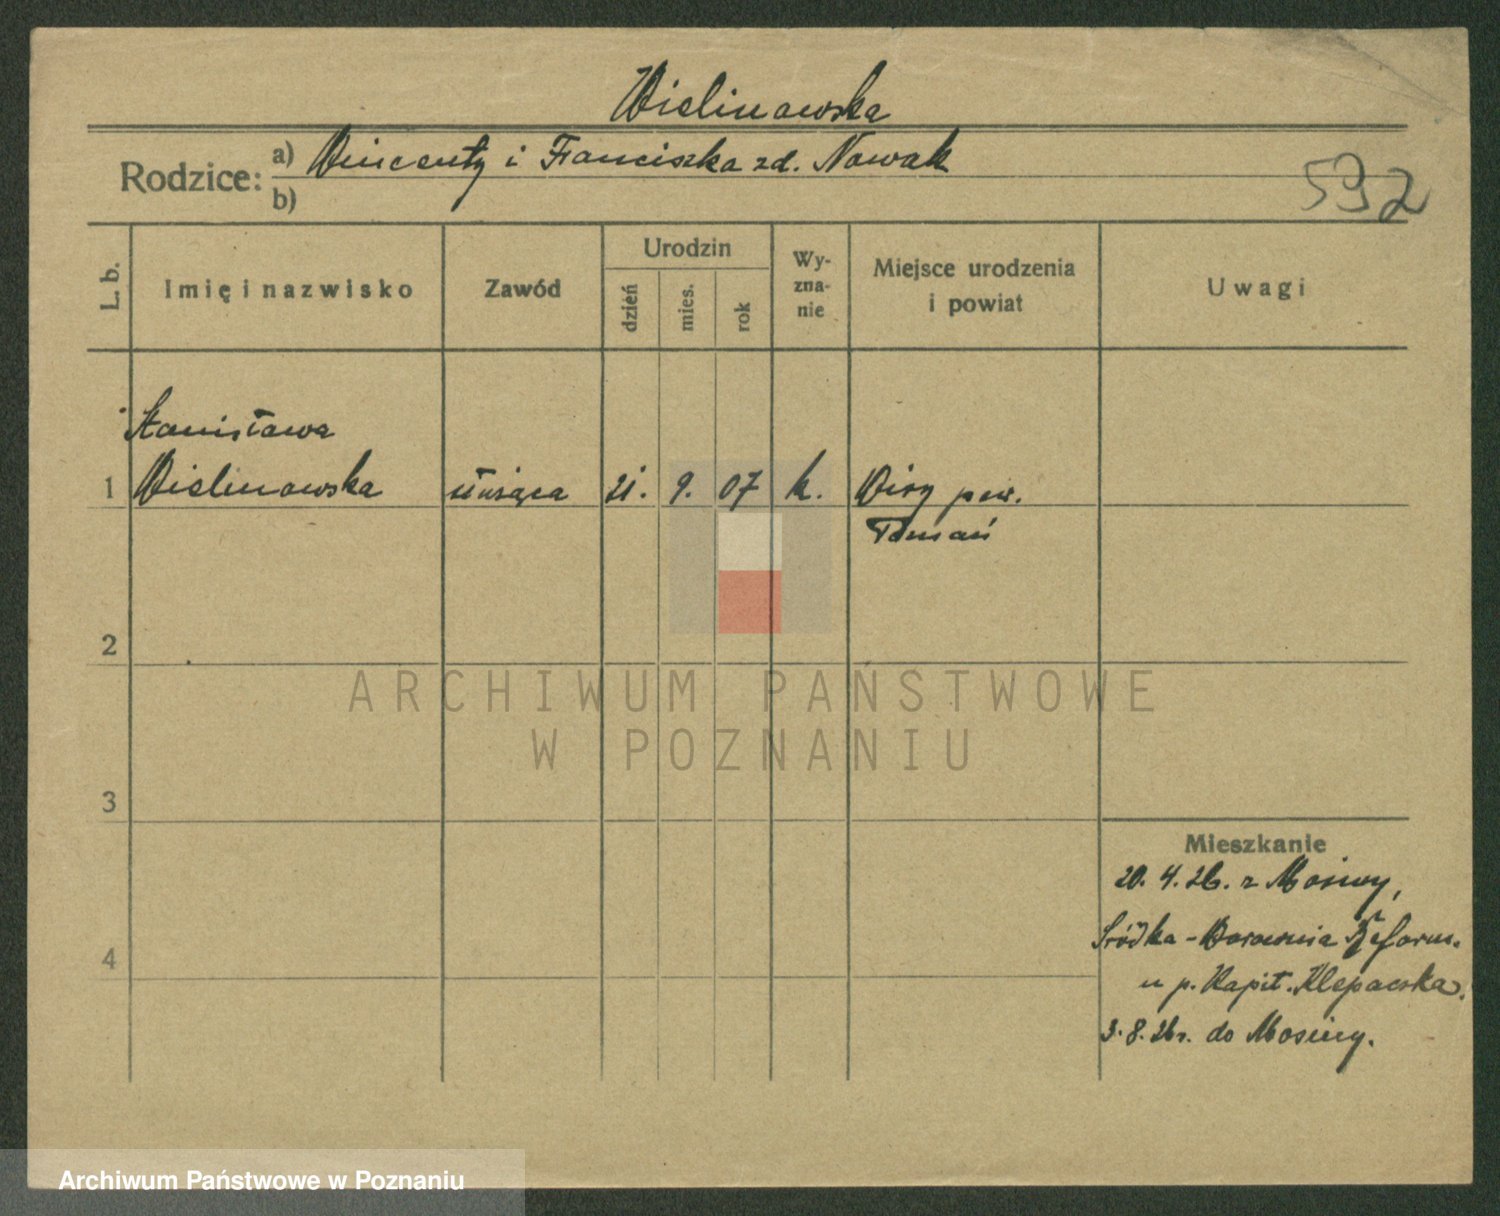 Wielinowska
Rodzice: a) Wincenty i Franciszka zd. Nowak
b)
592
L. b.
Imię i nazwisko
Zawód
Urodzin
dzień
mies.
rok
Wy-
zna-
nie
Miejsce urodzenia
i powiat
Uwagi
Stanisława
1 Wielinowska służąca 21. 9. 07 k. Wiry pow.
Poznań
2
ARCHIWUM PAŃSTWOWE
W POZNANIU
3
Mieszkanie
20. 4. 26. z Mosiny,
Śródka - Reform.
4
u p. Kapit.
3. 8. 26. do Mosiny.
Archiwum Państwowe w Poznaniu